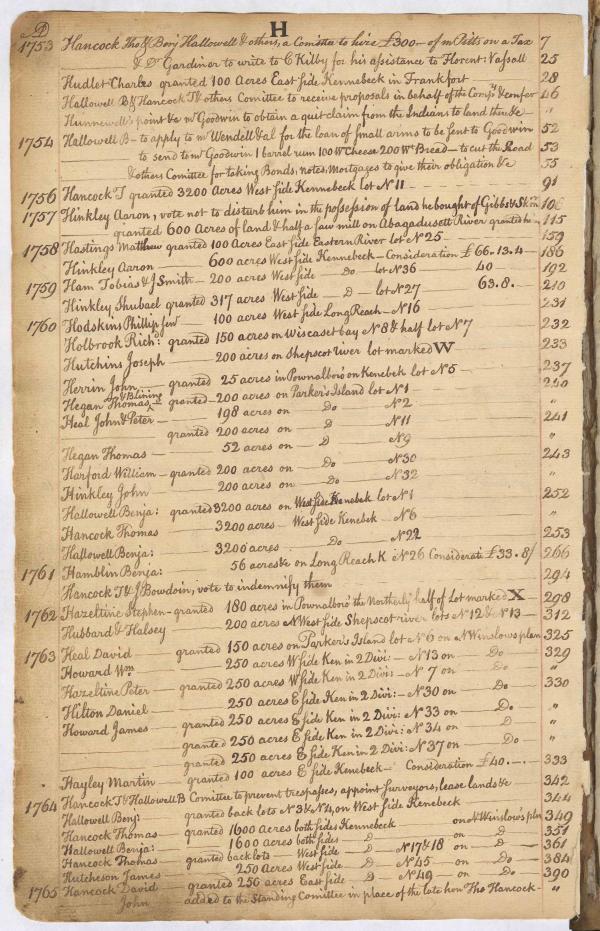 AD H
1753 Hancock Tho & Benj Hallowell & others, a Comittee to hire £300 - of mr Pitts on a Tax 7
& Dr Gardiner to write to C Kilby for his assistance to Florent: Vassall 25
Hudlet Charles granted 100 Acres East side Kennebeck in Frankfort 28
Hallowell B & Hancock T & others Comittee to receive proposals in behalf of the Compy & confer 46
Hunnewell's point &c mr Goodwin to obtain a quit claim from the Indians to land there &c "
1754 Hallowell B - to apply to mr Wendell & al for the loan of small arms to be sent to Goodwin 52
to send to mr Goodwin 1 barrel rum 100 Wt Cheese 200 Wt Bread - to cut the Road 53
& others Comittee for taking Bonds, notes, Mortgages to give their obligation &c 55
1756 Hancock T granted 3200 Acres West side Kennebeck lot N 11 91
1757 Hinkley Aaron, vote not to disturb him in the possession of land he bought of Gibbs & 106
granted 600 Acres of land & half a saw mill on Abagadusett River granted 115
1758 Hastings Matthew granted 100 Acres East side Eastern River lot N 25 159
Hinkley Aaron 600 acres West side Kennebeck - Consideration £66.13.4 - 186
1759 Ham Tobias & J Smith - 200 acres West side Do lot N 36 40 192
Hinkley Shubael granted 317 acres West side D lot N 27 63.8. 210
1760 Hodskins Phillip junr 100 acres West side Long Reach - N 16 231
Holbrook Richd: granted 150 acres on Wiscaset bay N 8 & half lot N 7 232
Hutchins Joseph 200 acres on Shepscot river lot marked W 233
Herrin John granted 25 acres in Pownalboro' on Kenebek lot N 5 237
Hegan Thomas, & Blining granted - 200 acres on Parker's Island lot N 1 240
Heal John & Peter 198 acres on Do N 2 "
granted 200 acres on D N 11 241
Hegan Thomas 52 acres on D N 9 "
Harford William - granted 200 acres on Do N 30 243
Hinkley John 200 acres on Do N 32 "
Hallowell Benja: granted 3200 acres on West side Kenebek lot N 1 252
Hancock Thomas 3200 acres - West side Kenebek N 6 "
Hallowell Benja: 3200 acres Do N 22 253
1761 Hamblin Benja: 56 acres &c on Long Reach K N 26 Considerati £33.8/ 266
Hancock T & J Bowdoin, vote to indemnify them 294
1762 Hazeltine Stephen - granted 180 acres in Pownalboro' the Northerly half of Lot marked X 298
Hubbard & Halsey 200 acres N West side Shepscot river lots N 12 & N 13 312
1763 Heal David granted 150 acres on Parker's Island lot N 6 on N Winslow's plan 325
Howard Wm 250 acres W side Ken in 2 Divi: - N 13 on Do 329
Hazeltine Peter granted 250 acres W side Ken in 2 Divi: - N 7 on D "
Hilton Daniel 250 acres E side Ken in 2 Divi: - N 30 on Do 330
Howard James granted 250 acres E side Ken in 2 Divi: N 33 on Do "
granted 250 acres E side Ken in 2 Divi: N 34 on D "
granted 250 acres E side Ken in 2 Divi: N 37 on Do "
Hayley Martin granted 100 acres E side Kenebeck - Consideration £40. 333
1764 Hancock T & Hallowell B Comittee to prevent trespasses, appoint surveyors, lease lands &c 342
Hallowell Benj: granted back lots N 3 & N 4, on West side Kenebeck 344
Hancock Thomas granted 1600 acres both sides Kennebeck on N Winslow's plan 349
Hallowell Benja: 1600 acres both sides D on D 351
Hancock Thomas granted back lots West side D N 17 & 18 on D 361
Hutcheson James 250 acres West side D N 45 on Do 384
1765 Hancock David granted 250 acres East side D N 49 on D 390
John added to the Standing Comittee in place of the late hon Tho Hancock "